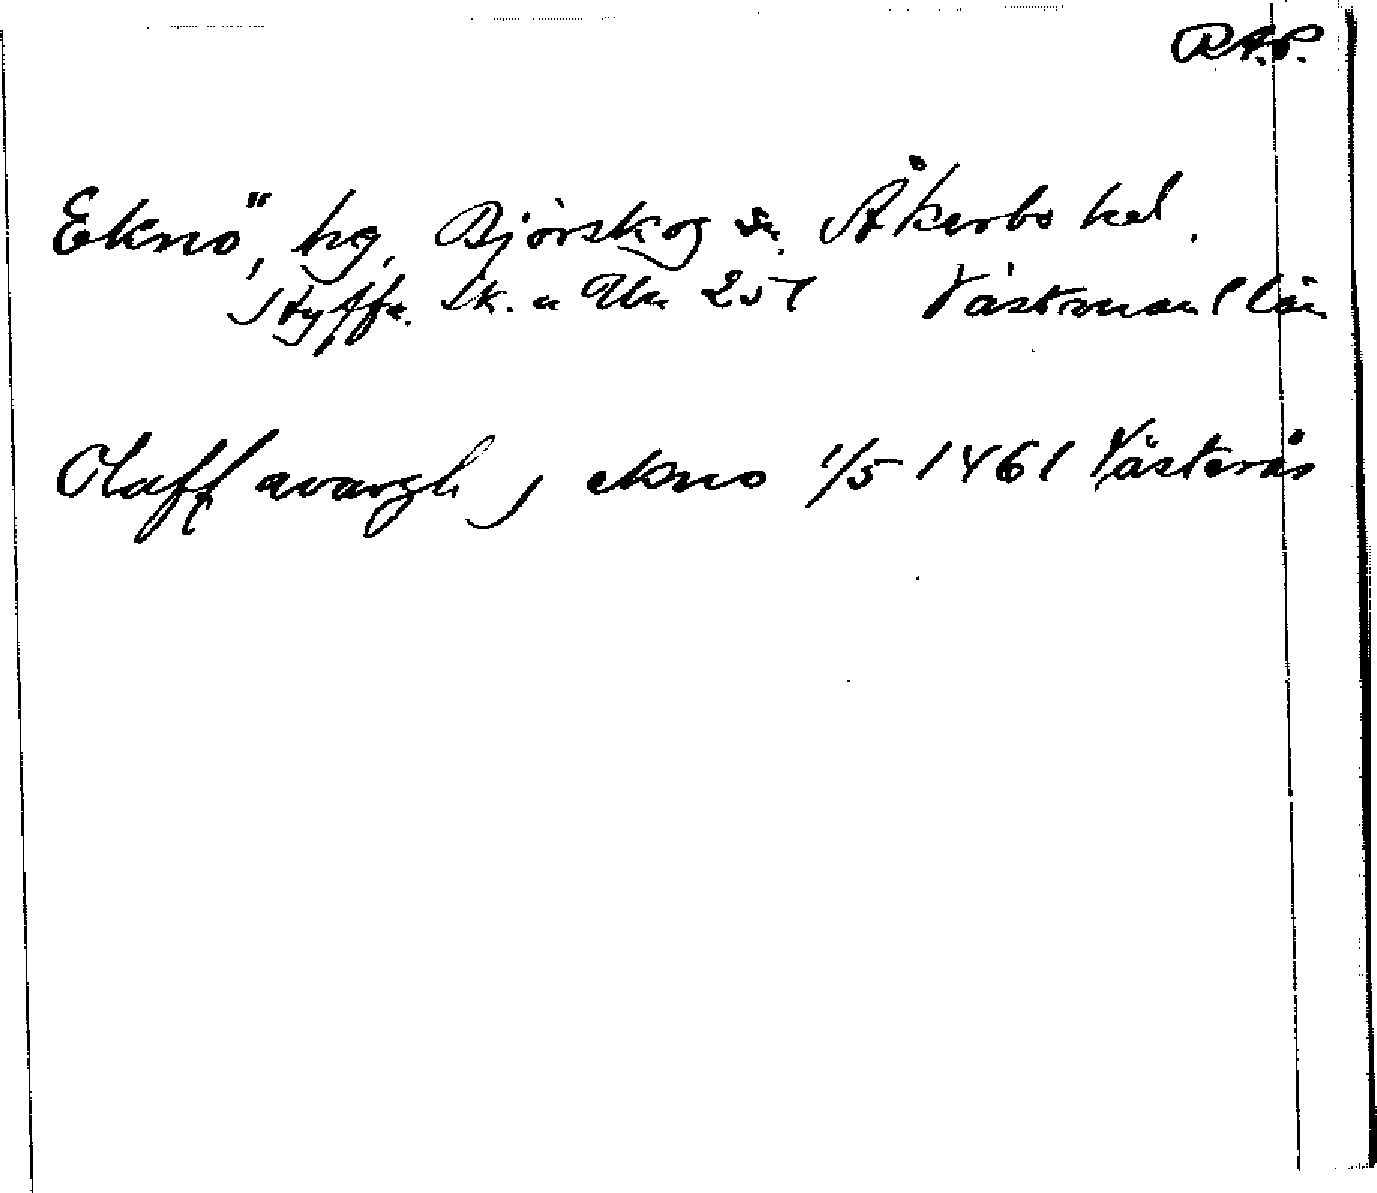 R.A.P.
Eknö, hg, Björskog sn. Åkerbo hd.
Styffe. Sk. u Un 251 Västmanl län
Olaff avargh j ekno 1/5 1461 Västerås